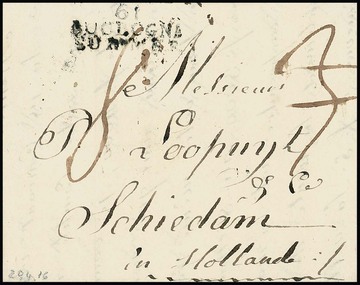 61
BOULOGNE
SUR MER
Messieurs
P. Loopuyt
& Co
Schiedam
in Hollande :/
20.4.16